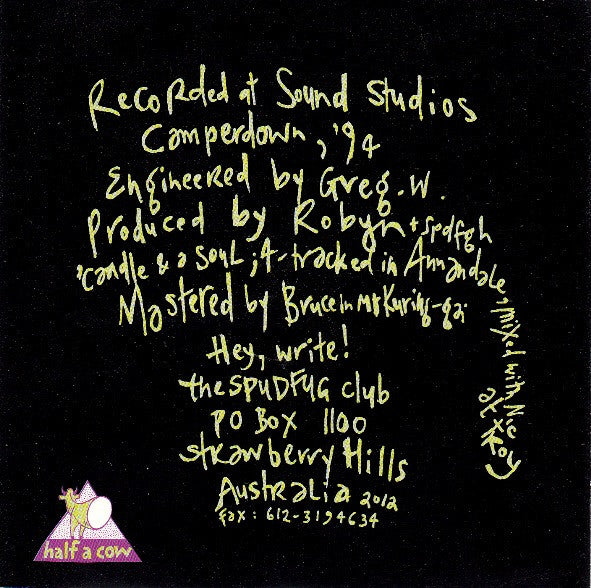 Recorded at Sound Studios
Camperdown, '94
Engineered by Greg. W.
Produced by Robyn + spdfgh
'candle & a soul; 4-tracked in Annandale, mixed with Nic
at
Mastered by Bruce in Mt Kuring-gai
Hey, write!
the SPUDFUG club
PO Box 1100
Strawberry Hills
Australia 2012
fax: 612-3194634
half a cow